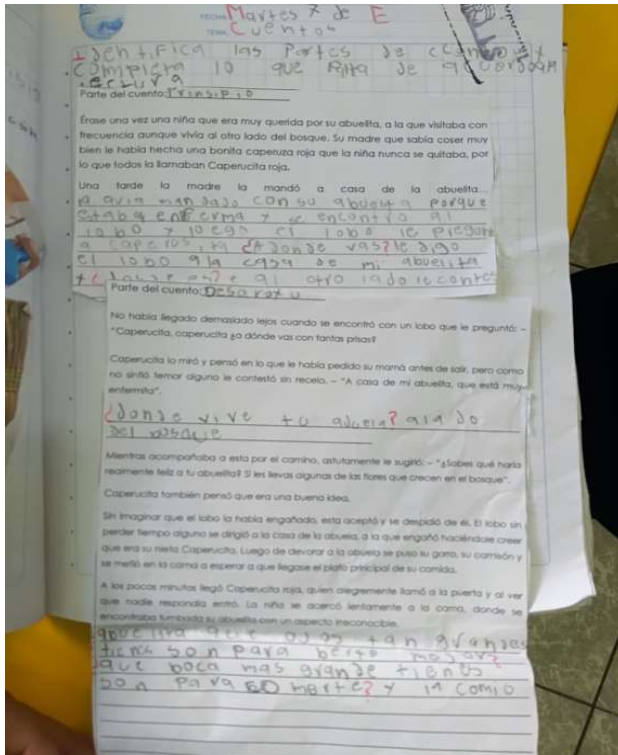 FECHA: Martes 7 de E
TEMA: Cuentos
Identifica las Partes de
Completa lo que falta de
Parte del cuento: Prinsipio
Érase una vez una niña que era muy querida por su abuelita, a la que visitaba con
frecuencia aunque vivía al otro lado del bosque. Su madre que sabía coser muy
bien le había hecha una bonita caperuza roja que la niña nunca se quitaba, por
lo que todos la llamaban Caperucita roja.
Una tarde la madre la mandó a casa de la abuelita...
la avia mandado con su abuelita porque
estaba enferma y se encontro al
lobo y el lobo le
a ¿Adonde vas? le digo
el lobo a la casa de mi abuelita
y al otro lado le
Parte del cuento:
No había llegado demasiado lejos cuando se encontró con un lobo que le preguntó: –
"Caperucita, caperucita ¿a dónde vas con tantas prisas?
Caperucita lo miró y pensó en lo que le había pedido su mamá antes de salir, pero como
no sintió temor alguno le contestó sin recelo. – "A casa de mi abuelita, que está muy
enfermita".
¿donde vive tu
del bosque
Mientras acompañaba a esta por el camino, astutamente le sugirió: – "¿Sabes qué haría
realmente feliz a tu abuelita? Si les llevas algunas de las flores que crecen en el bosque".
Caperucita también pensó que era una buena idea.
Sin imaginar que el lobo la había engañado, esta aceptó y se despidió de él. El lobo sin
perder tiempo alguno se dirigió a la casa de la abuela, a la que engañó haciéndole creer
que era su nieta Caperucita. Luego de devorar a la abuela se puso su gorro, su camisón y
se metió en la cama a esperar a que llegase el plato principal de su comida.
A los pocos minutos llegó Caperucita roja, quien alegremente llamó a la puerta y al ver
que nadie respondía entró. La niña se acercó lentamente a la cama, donde se
encontraba tumbada su abuelita con un aspecto irreconocible.
que ojos tan grandes
tienes son para mejor?
que boca mas grande tienes
son para y la comio